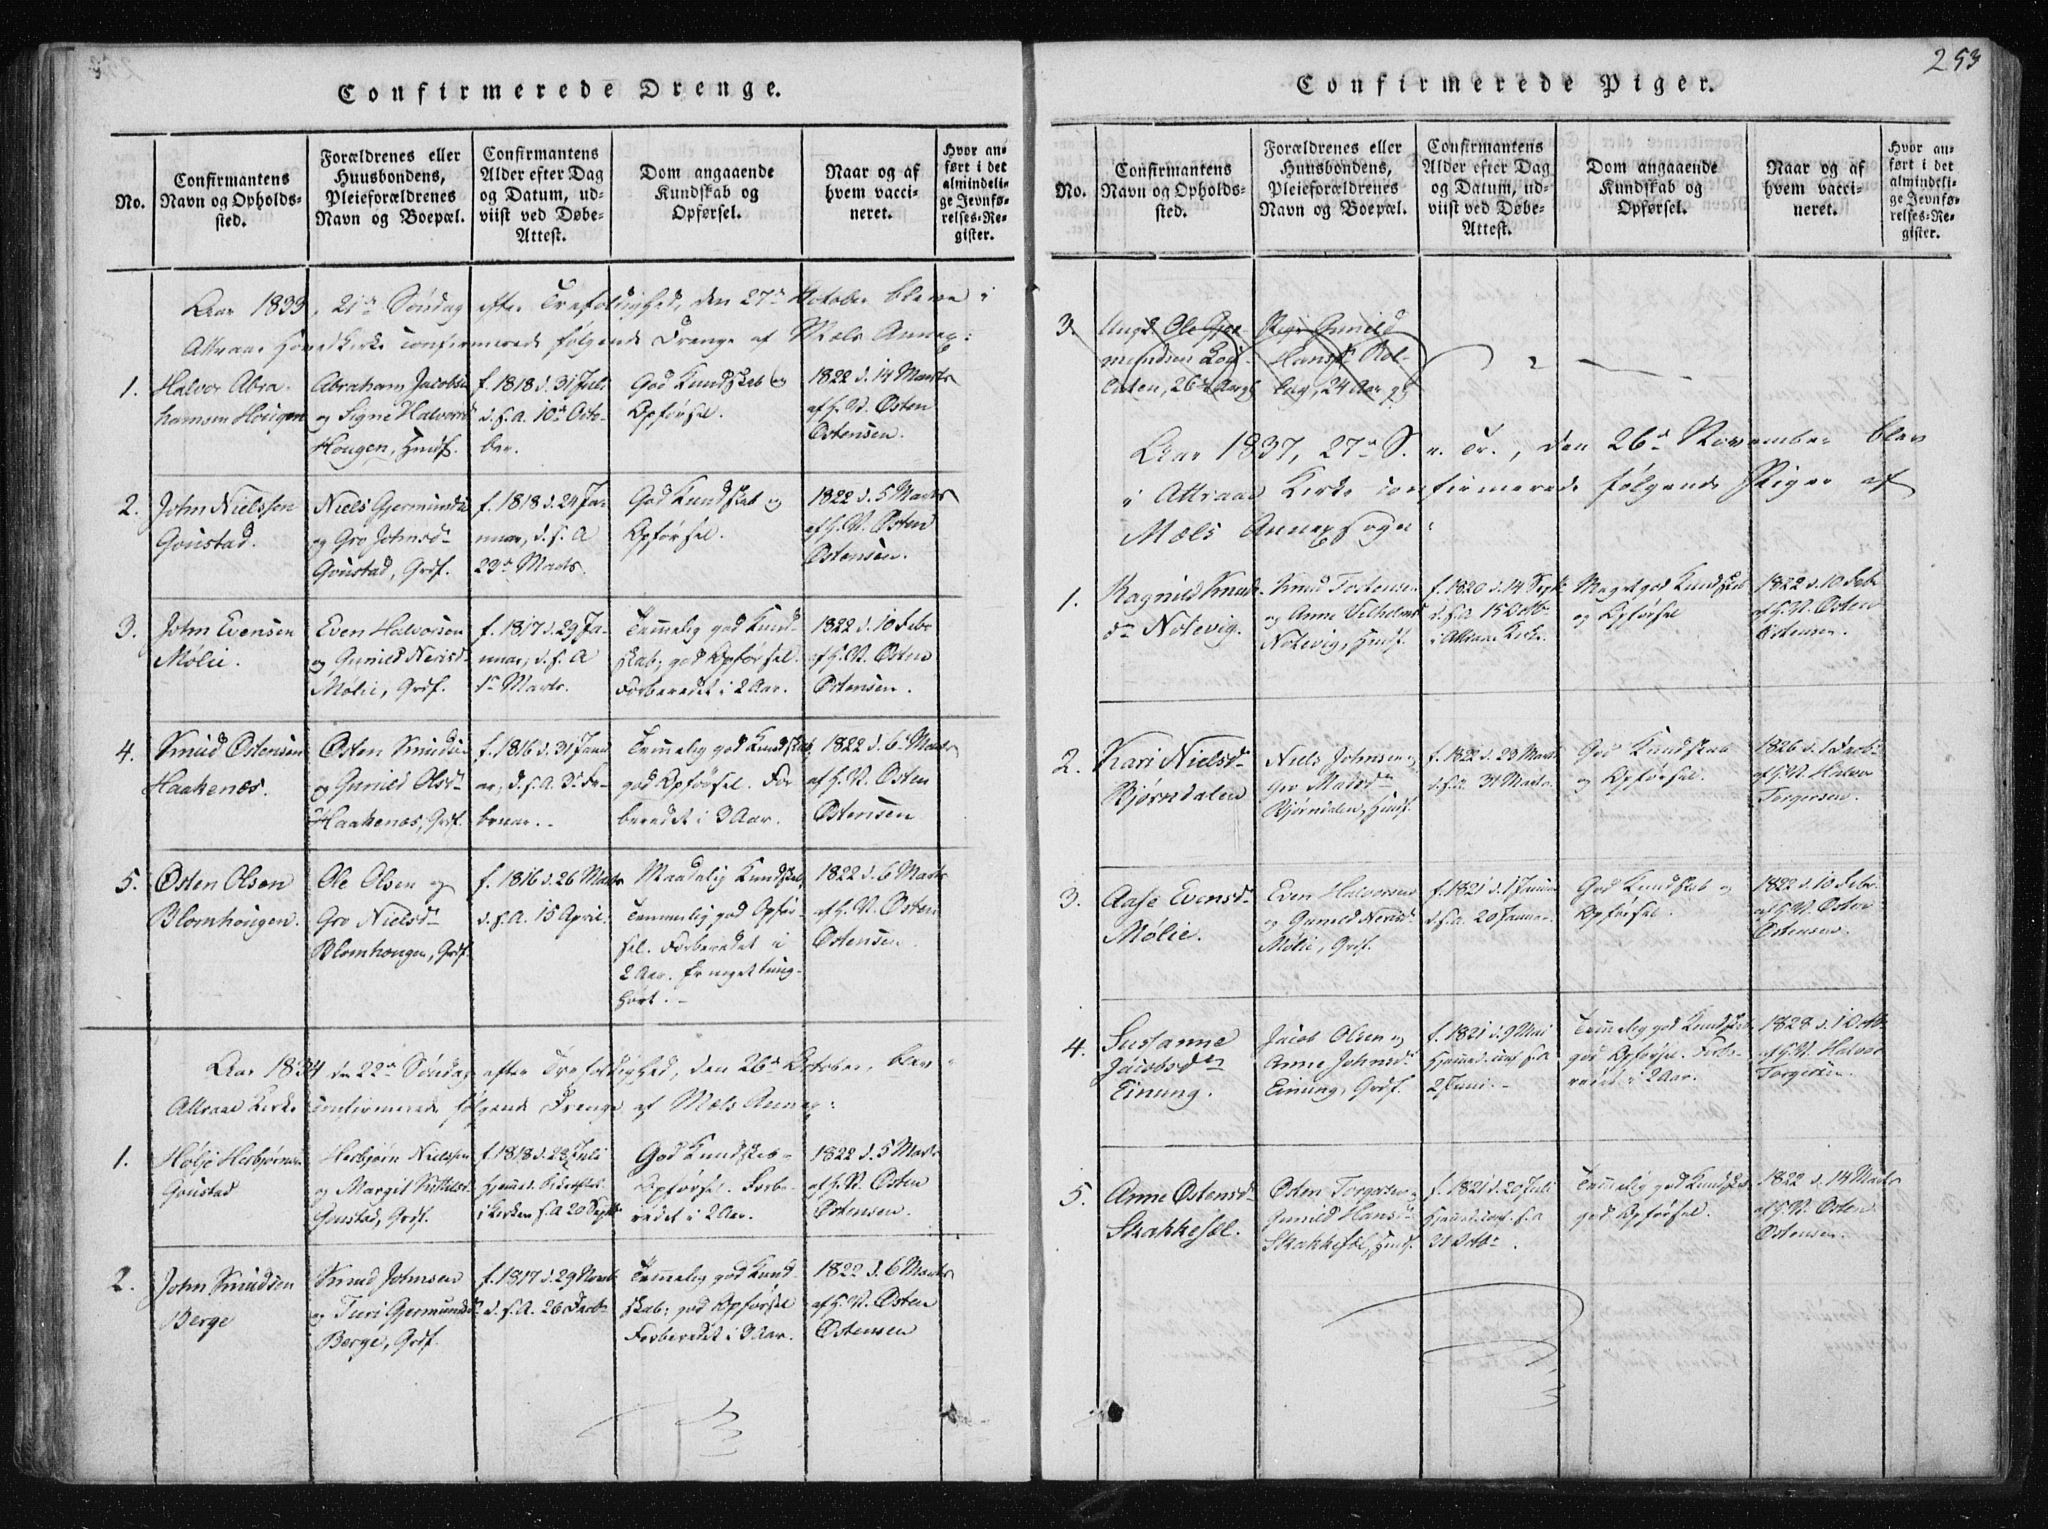 Confirmerede Drenge.
No.
Confirmantens
Navn og Opholds-
sted.
Forældrenes eller
Huusbondens,
Pleieforældrenes
Navn og Boepæl.
Confirmantens
Alder efter Dag
og Datum, ud-
viist ved Døbe-
Attest.
Dom angaaende
Kundskab og
Opførsel.
Naar og af
hvem vacci-
neret.
Hvor an-
ført i det
almindeli-
ge Jevnfø-
relses-Re-
gister.
Aar 1833, 21de Søndag efter Trefoldighed, den 27de October bleve i
Attraae Hovedkirke confirmerede følgende Drenge af Mæls Annex:
1.
Halvor Abra-
hamsen Hougen
Abraham Jacobsen
og Signe Halvorsd
Hougen, Huusf.
f. 1818 d. 31 Juli
d. s. A. 10de Octo-
ber.
God Kundskab og
Opførsel.
1822 d. 14 Marts
af H. V. Østen
Østensen.
2.
John Nielssen
Goustad.
Niels Gjermunds
og Gro Johnsdr
Goustad, Grdf.
f. 1818 d. 24 Ja-
nuar, d. s. A
23de Marts.
God Kundskab og
Opførsel.
1822 d. 5 Marts
af H. V. Østen
Østensen.
3.
John Evensen
Mølie.
Even Halvorsen
og Gunild Nerisd-
Mølie, Grdf.
f. 1817 d. 29 Ja-
nuar, d. s. A
1ste Marts.
Temmelig god Kund-
skab; god Opførsel.
Forberedet i 2 Aar.
1822 d. 10 Febr
af H. V. Østen
Østensen.
4.
Knud Østensen
Haakenæs.
Østen Knudsen
og Gunild Olsdr
Haakenæs, Grdf.
f. 1816 d. 31 Janu
ar, d. s. A. 3de Fe-
bruar.
Temmelig god Kundskab,
god Opførsel. For-
beredet i 3 Aar.
1822 d. 6 Marts
af H. V. Østen
Østensen
5.
Østen Olsen
Blomhougen.
Ole Olsen og
Gro Nielsdr
Blomhougen, Grdf.
f. 1816 d. 26 Marts
d. s. A. 15 April.
Maadelig Kundskab,
Temmelig god Opfør-
sel. Forberedet i
2 Aar. Er meget tung-
hørt.
1822 d. 6 Marts
af H. V. Østen
Østensen.
Aar 1834 den 22de Søndag efter Trefoldighed, den 26de October, blev i
Attraae Kirke confirmerede følgende Drenge af Mæls Annex:
1.
Høljo Herbjørnsen
Goustad
Herbjørn Nielssen
og Margit Kittelsd
Goustad, Grdf.
f. 1818 d. 23 Juli
i Kirken s. A 20 Septbr
God Kundskab-
Opførsel. Forbe-
redet i 2 Aar.
1822 d. 5 Marts
af H. V. Østen
Østensen.
2.
John Knudsen
Berge
Knud Johnsen
og Turi Gjermundsd
Berge, Grdf.
f. 1817 d. 29 Novb
Temmelig god Kund-
skab; god Opførsel
Forberedet i 3 Aar.
1822 d. 6 Marts
af H. V. Østen
Østensen
253
Confirmerede Piger.
No.
Confirmantens
Navn og Opholds-
sted.
Forældrenes eller
Huusbondens,
Pleieforældrenes
Navn og Boepæl.
Confirmantens
Alder efter Dag
og Datum, ud-
viist ved Døbe-
Attest.
Dom angaaende
Kundskab og
Opførsel.
Naar og af
hvem vacci-
neret.
Hvor an-
ført i det
almindeli-
ge Jevnfø-
relses-Re-
gister.
3.
Ungk. Ole Gjer-
mundsen
26 Aar gl
Pige Gunild
Hansdr
24 Aar gl
Aar 1837, 27de S. e. Tr., den 26de November blev
i Attraae Kirke confirmerede følgende Piger af
Mæls Annexsogn:
1.
Ragnild Knuds-
dr Notevig.
Knud Tostensen
og Anne Vilhelmsd
Notevig, Huusf.
f. 1820 d. 14 Septbr
d. s. A. 15 Octbr
i Attraae Kirke.
Meget god Kundskab
og Opførsel
1822 d. 10 Febr
af H. V. Østen
Østensen.
2.
Kari Nielsdr
Bjørndalen
Niels Johnsen og
Gro Matsdr
Bjørndalen, Huusf.
f. 1822 d. 23 Marts
d. s. A. 31 Marts.
God Kundskab
og Opførsel.
af H. V. Halvor
Torgersen.
3.
Aase Evensdr
Mølie.
Even Halvorsen
og Gunild Nerisd
Mølie, Grdf.
f. 1821 d. 1 Januar
d. s. A. 20 Januar.
God Kundskab og
Opførsel.
1822 d. 10 Febr.
af H. V. Østen
Østensen.
4.
Susanne
Jacobsdr
Einung.
Jacob Olsen og
Anne Johnsdr
Einung, Grdf.
f. 1821 d. 9 Mai
Hjemmed. inf. s. A
2 Juni.
Temmelig god Kundskab,
god Opførsel. Forbe-
redet i 2 Aar.
1828 d. 1 Octbr
af H. V. Halvor
Torgersen.
5.
Anne Østensdr
Skakkesæl.
Østen Torgersen og
Gunild Hansdr
Skakkesæl, Huusf.
f. 1821 d. 20 Juli
Hjemmed. inf. s. A
21 Octbr.
Temmelig god Kundskab
god Opførsel.
1822 d. 14 Marts
af H. V. Østen
Østensen.